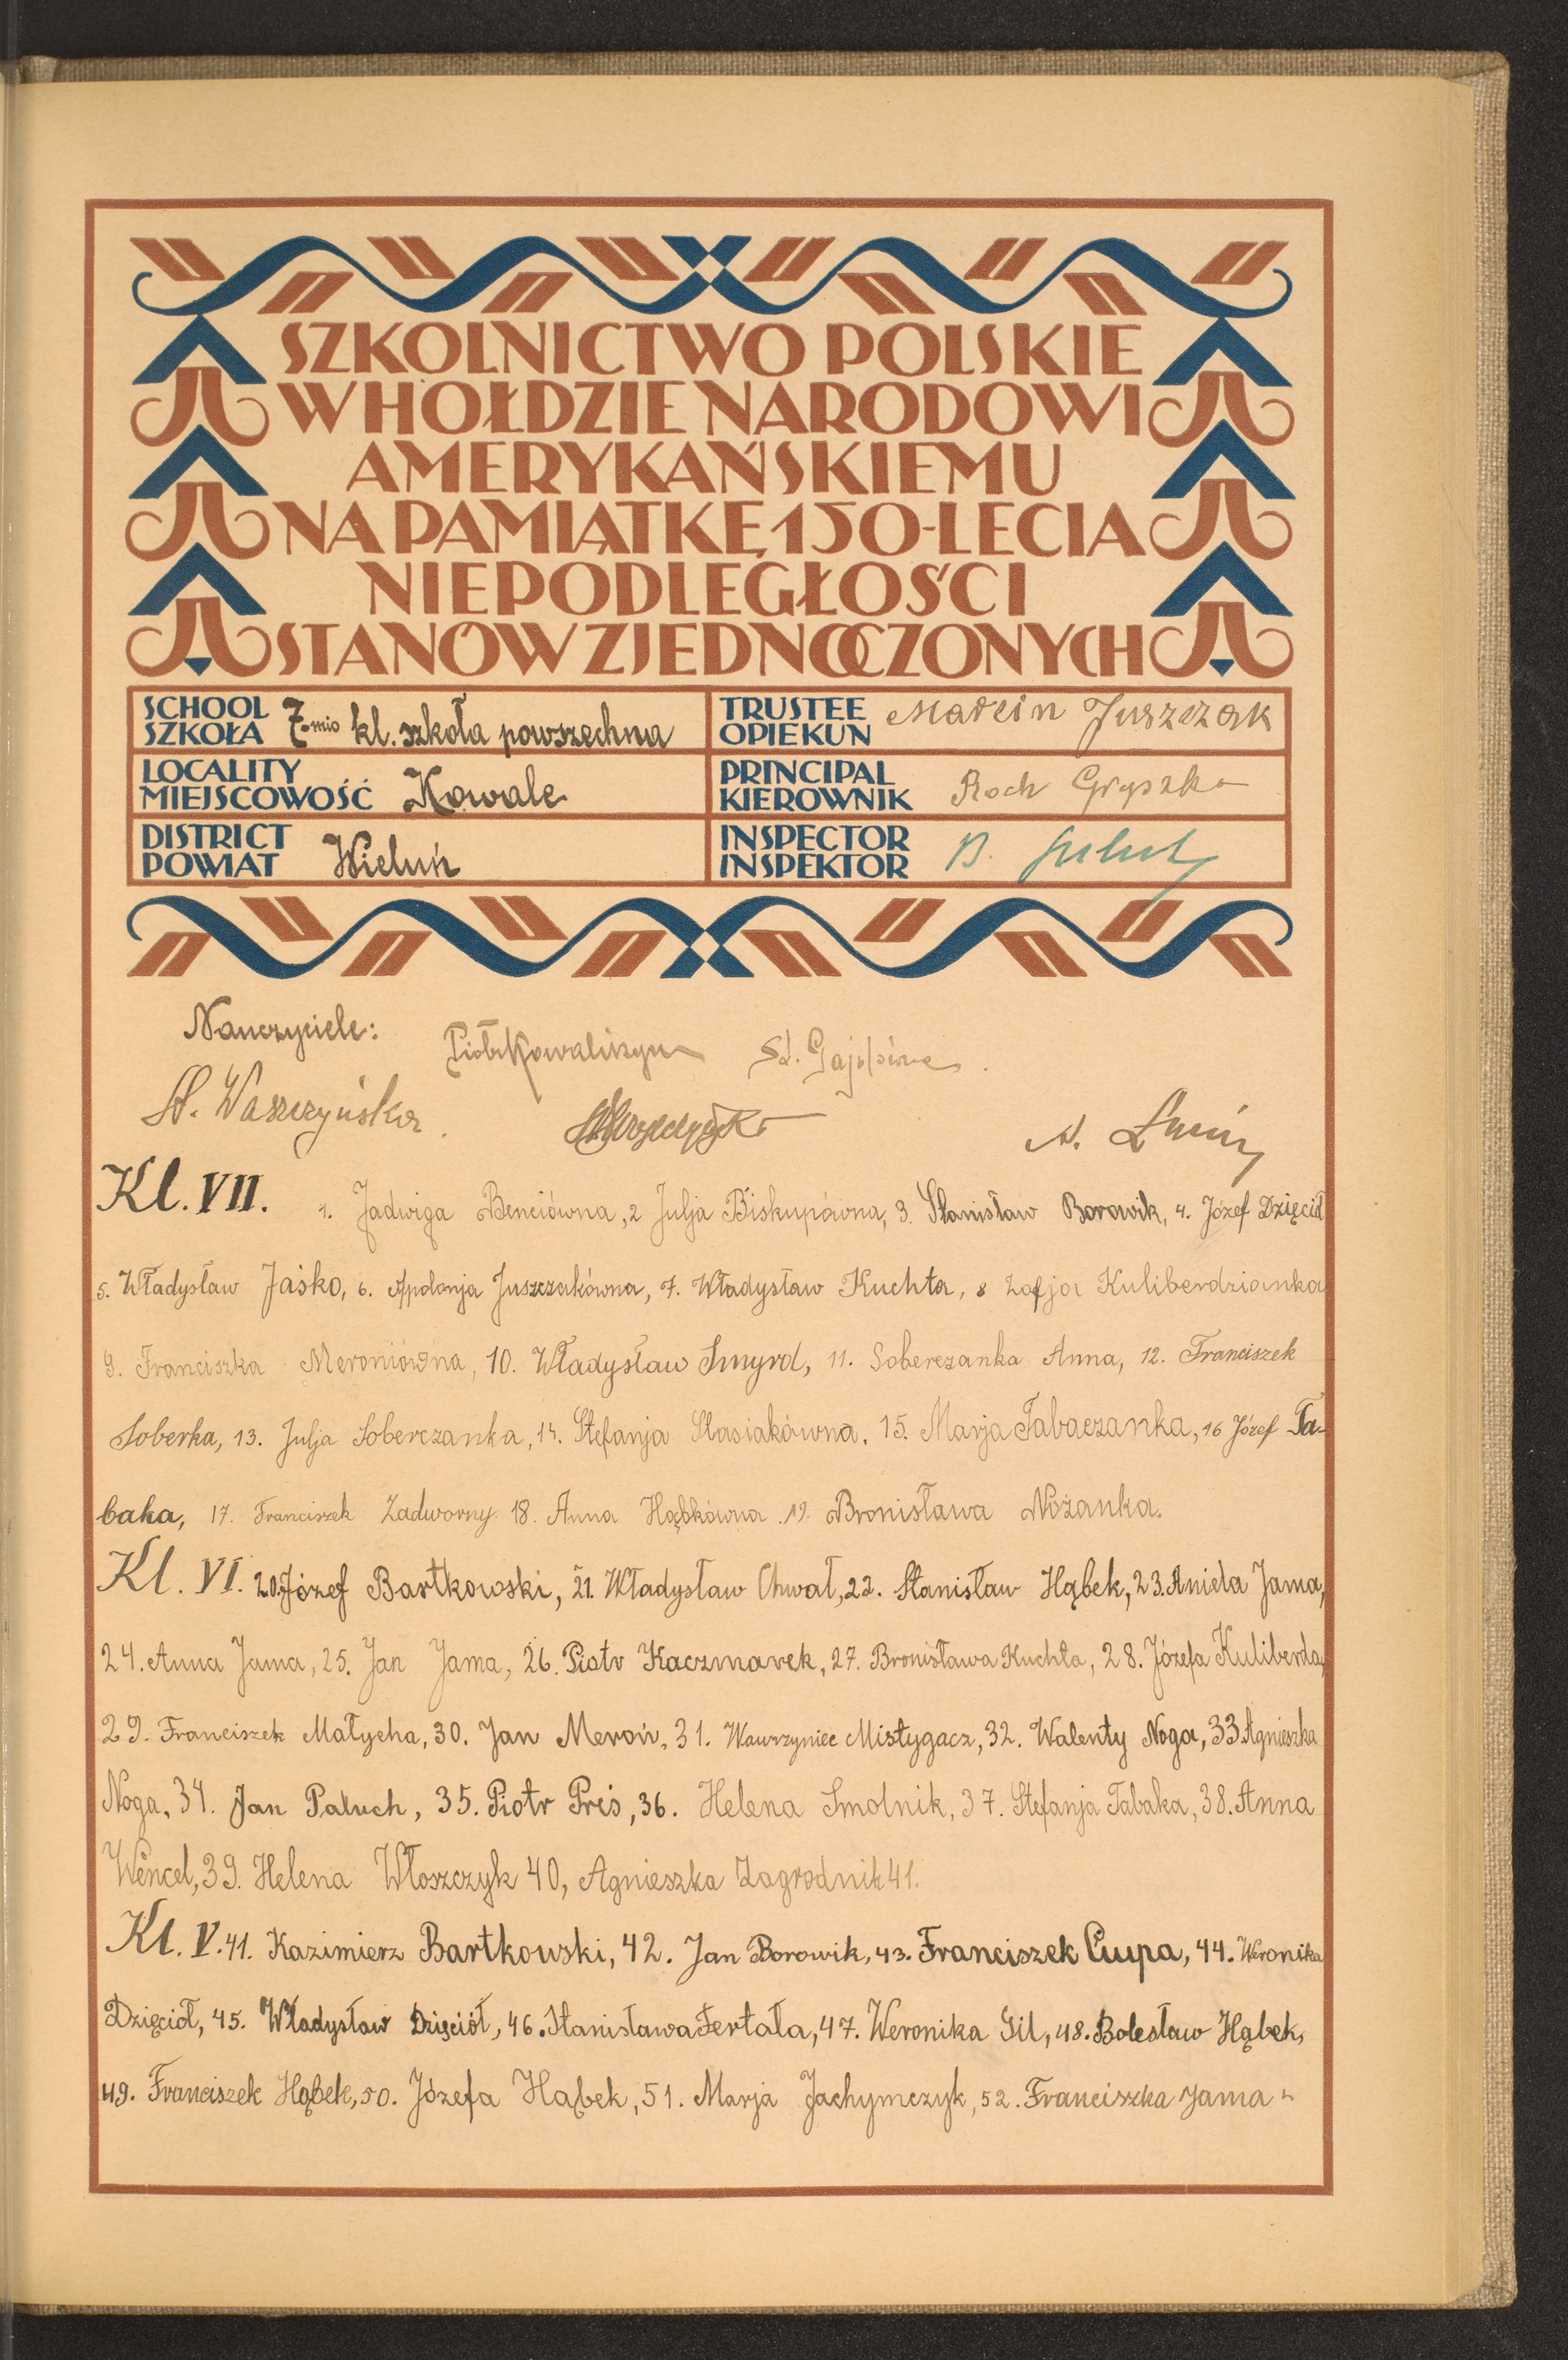 SZKOLNICTWO POLSKIE
W HOŁDZIE NARODOWI
AMERYKAŃSKIEMU
NA PAMIĄTKĘ 150-LECIA
NIEPODLEGŁOŚCI
STANÓW ZJEDNOCZONYCH
SCHOOL
SZKOŁA 7-mio kl. szkoła powszechna
TRUSTEE
OPIEKUN Marcin Juszczak
LOCALITY
MIEJSCOWOŚĆ Kowale
PRINCIPAL
KIEROWNIK Roch Gryszka
DISTRICT
POWIAT Wieluń
INSPECTOR
INSPEKTOR B.
Nauczyciele: Piotr Kowaliszyn St.
St. Waszczyńska
Kl. VII. 1. Jadwiga Benciówna, 2 Julja Biskupówna, 3. Stanisław Borowik, 4. Józef Dzięcioł
5. Władysław Jaśko, 6. Apolonja Juszczakówna, 7. Władysław Kuchta, 8 Zofja Kuliberdzianka
9. Franciszka Meroniówna, 10. Władysław Smyrd, 11. Soberczanka Anna, 12. Franciszek
Soberka, 13. Julja Soberczanka, 14. Stefanja Stasiakówna, 15. Marja Tabaczanka, 16 Józef Ta-
baka, 17. Franciszek Zadworny. 18. Anna Hąbkówna. 19. Bronisława Nożanka.
Kl. VI. 20. Józef Bartkowski, 21. Władysław Chwał, 22. Stanisław Hąbek, 23. Aniela Jama,
24. Anna Jama, 25. Jan Jama, 26. Piotr Kaczmarek, 27. Bronisława Kuchta, 28. Józefa Kuliberda,
29. Franciszek Małycha, 30. Jan Meroń, 31. Wawrzyniec Mistygacz, 32. Walenty Noga, 33. Agnieszka
Noga, 34. Jan Paluch, 35. Piotr Pres, 36. Helena Smolnik, 37. Stefanja Tabaka, 38. Anna
Wencel, 39. Helena Włoszczyk 40, Agnieszka Zagrodnik 41.
Kl. V. 41. Kazimierz Bartkowski, 42. Jan Borowik, 43. Franciszek Ciupa, 44. Weronika
Dzięcioł, 45. Władysław Dzięciół, 46. Stanisława Fertała, 47. Weronika Gil, 48. Bolesław Hąbek,
49. Franciszek Hąbek, 50. Józefa Hąbek, 51. Marja Jachymczyk, 52. Franciszka Jama -